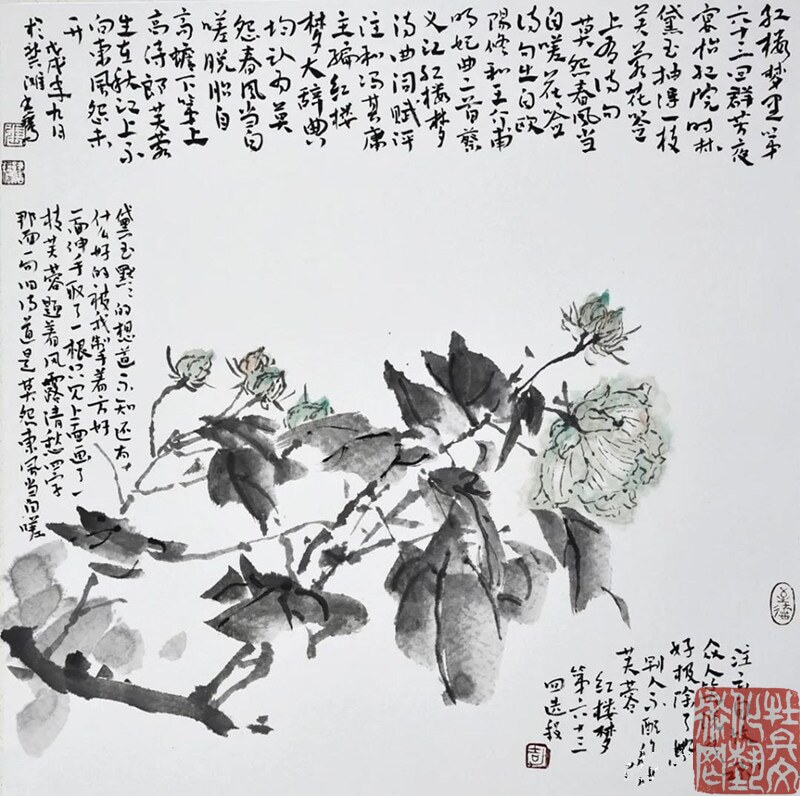 红楼梦里第
六十三回群芳夜
宴怡红院时林
黛玉抽得一枝
芙蓉花签
上有诗句
莫怨春风当
自嗟花签
诗句生自欧
阳修和王介甫
明妃曲二首蔡
义江红楼梦
诗曲词赋评
注和冯其庸
主编红楼
梦大辞典
均认为莫
怨春风当自
嗟脱胎自
高蟾下第上
高侍郎芙蓉
生在秋江上不
向东风怨未
开
戊戌年九月
于芜湖
黛玉默默的想道不知还有
什么好的被我掣着方好
一面伸手取了一根只见上面画了一
枝芙蓉题着风露清愁四字
那面一句旧诗道是莫怨东风当自嗟
注云
众人笑
好极除了
别人不配作
芙蓉
红楼梦
第六十三
回选段